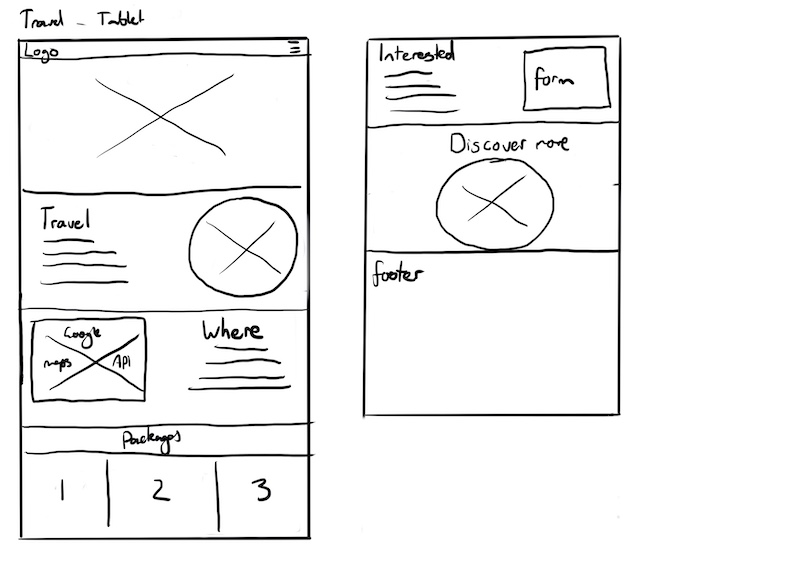 Travel - Tablet
Logo
Travel
Google
maps API
Where
Packages
1 2 3
Interested
form
Discover more
footer